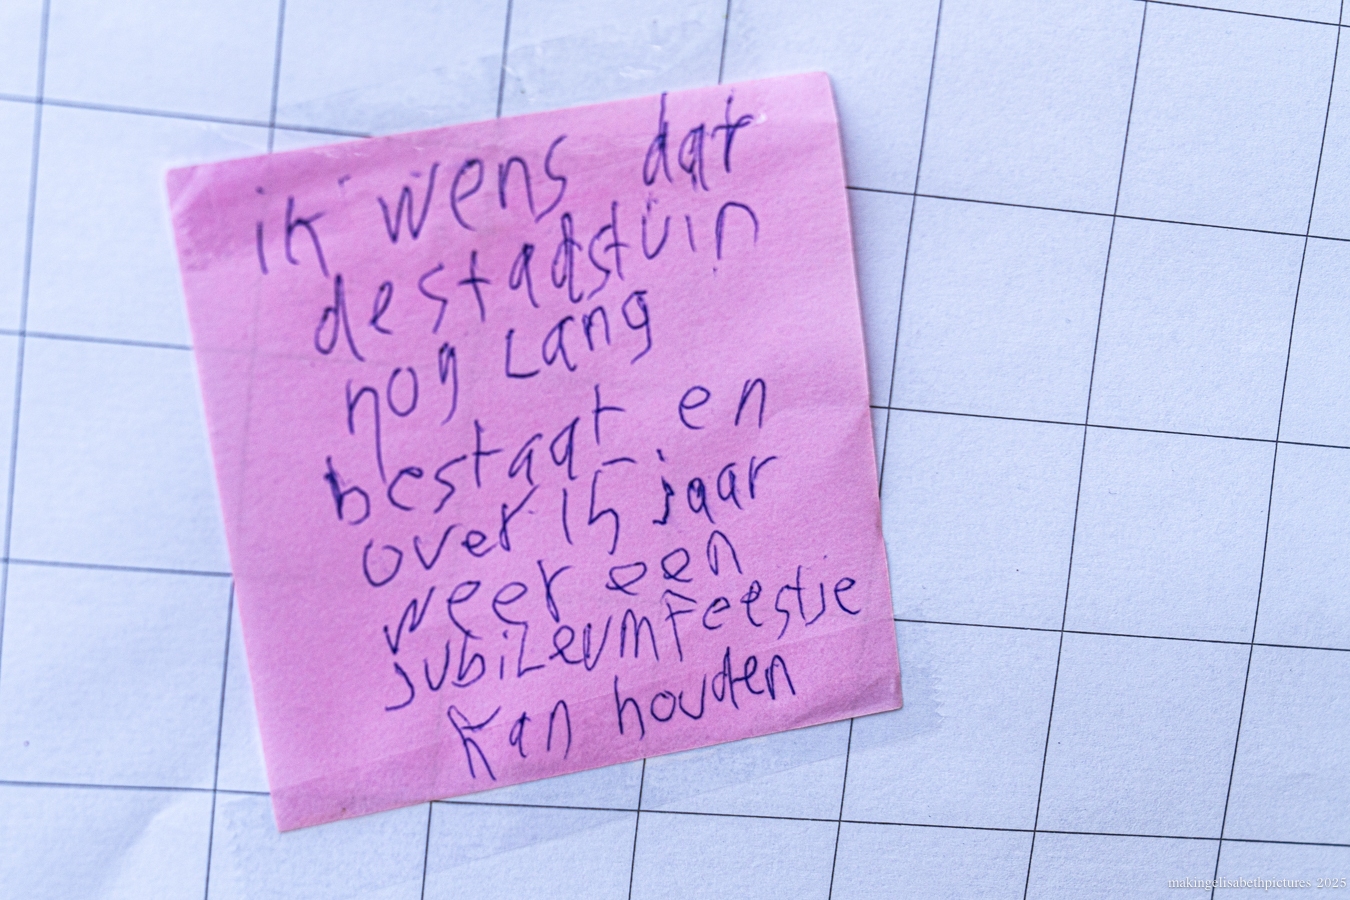 ik wens dat
de stadstuin
nog Lang
bestaat en
over 15 jaar
weer een
jubiLeumfeestje
kan houden
makingelisabethpictures 2025